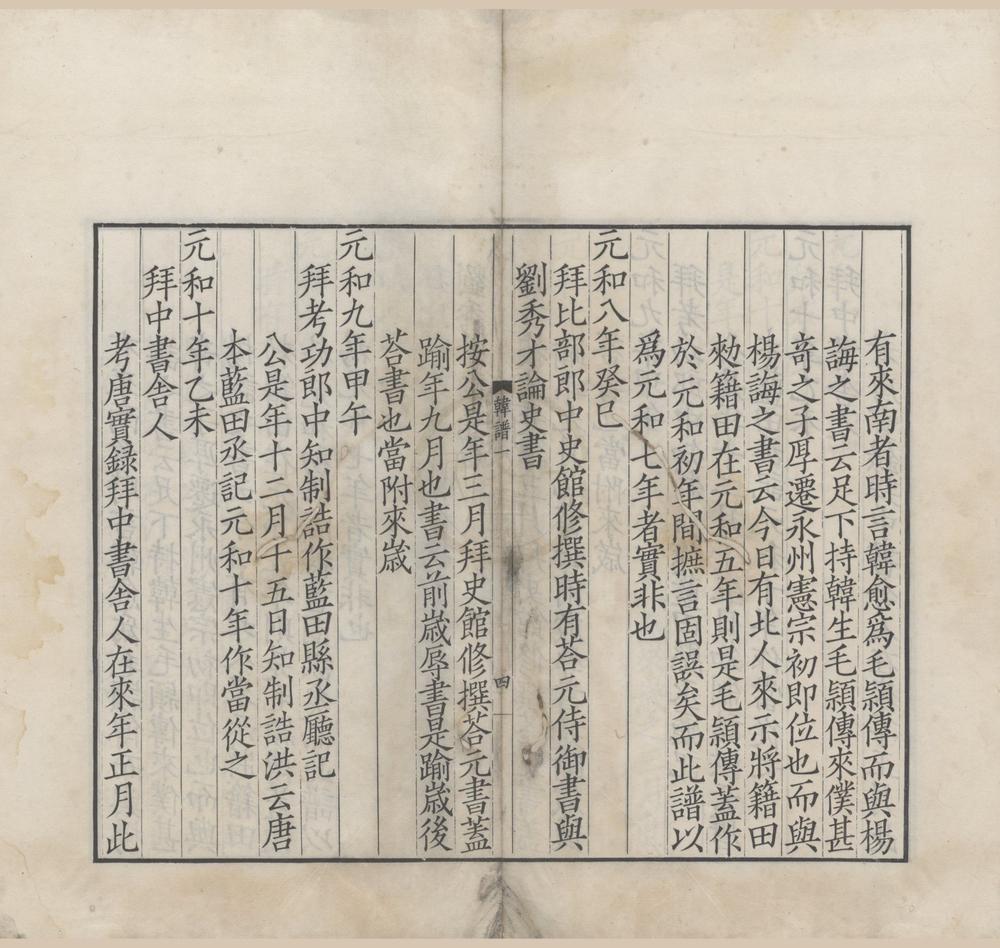 有來南者時言韓愈爲毛頴傳而與楊
誨之書云足下持韓生毛頴傳來僕甚
竒之子厚遷永州憲宗初即位也而與
楊誨之書云今日有北人來示將籍田
勑籍田在元和五年則是毛頴傳蓋作
於元和初年間摭言固誤矣而此譜以
爲元和七年者實非也
元和八年癸巳
拜比部郎中史館修撰時有荅元侍御書與
劉秀才論史書
韓譜一
四
按公是年三月拜史館修撰荅元書蓋
踰年九月也書云前歲辱書是踰歲後
荅書也當附來歲
元和九年甲午
拜考功郎中知制誥作藍田縣丞廳記
公是年十二月十五日知制誥洪云唐
本藍田丞記元和十年作當從之
元和十年乙未
拜中書舍人
考唐實録拜中書舍人在來年正月此